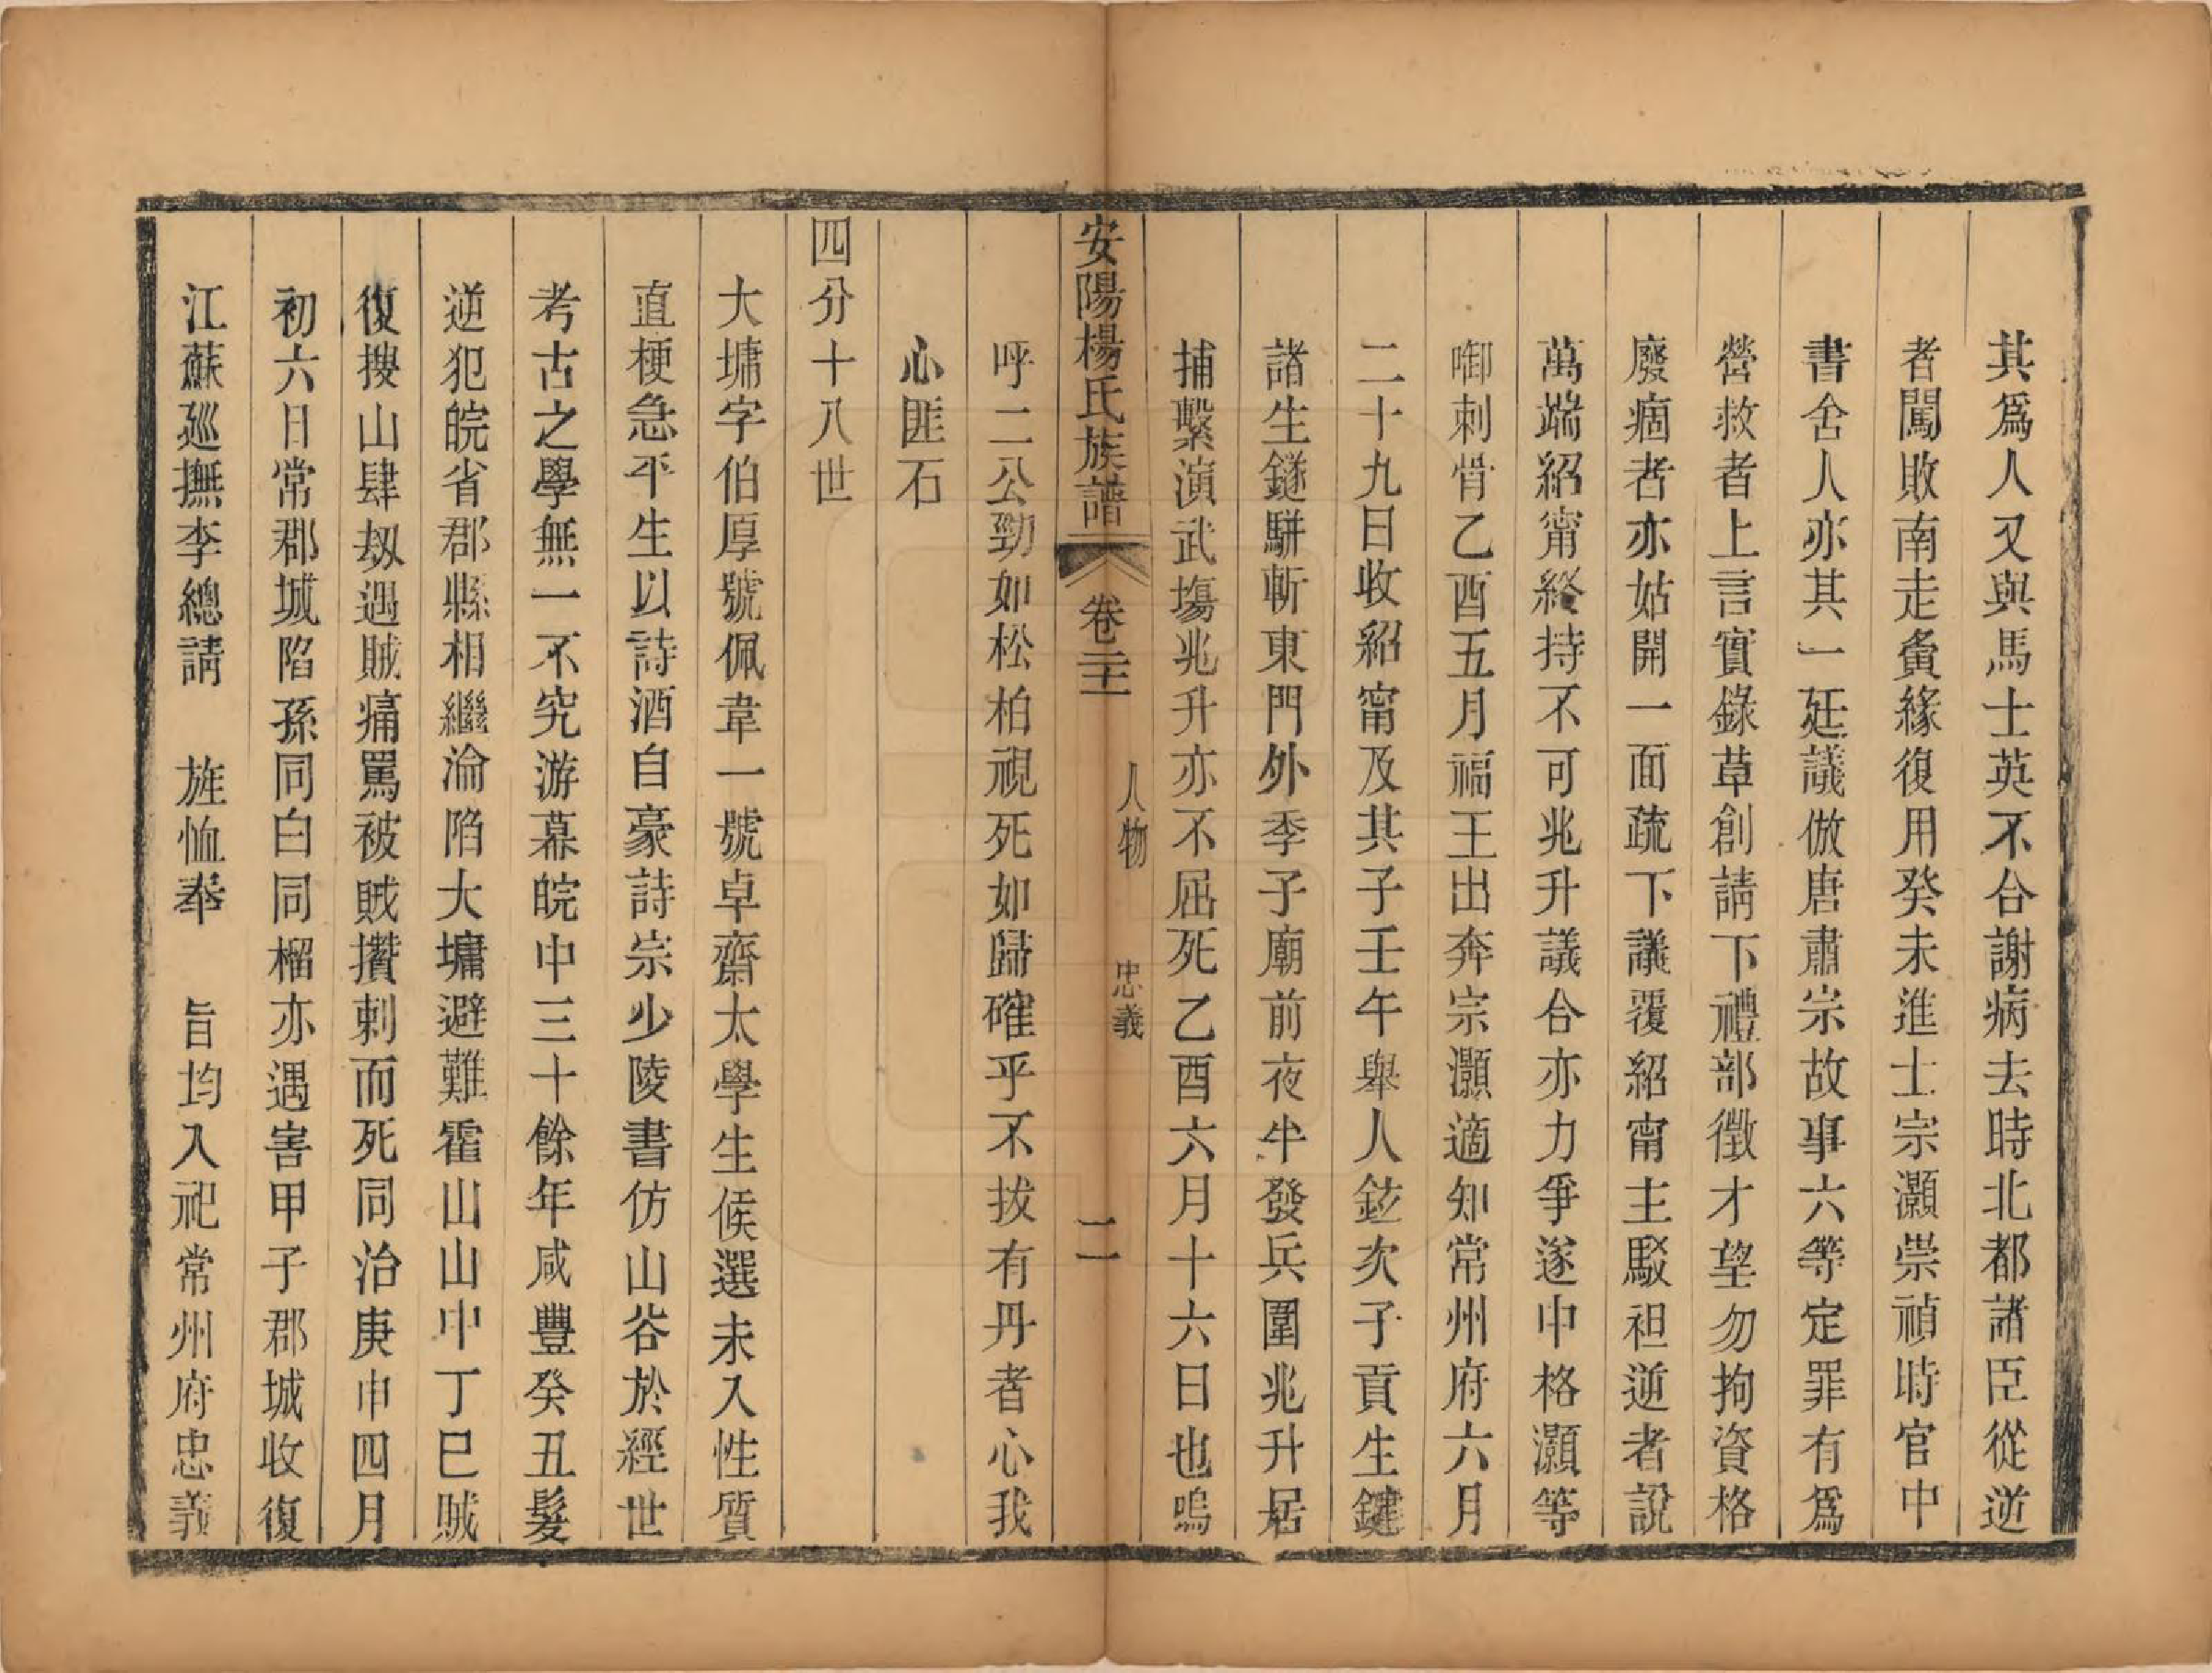 其爲人又與馬士英不合謝病去時北都諸臣從逆
者闖敗南走夤緣復用癸未進士宗灝崇禎時官中
書舍人亦其一廷議倣唐肅宗故事六等定罪有爲
營救者上言實錄草創請下禮部徴才望勿拘資格
廢痼者亦姑開一面疏下議覆紹甯主駁袒逆者說
萬端紹甯終持不可兆升議合亦力爭遂中格灝等
啣刺骨乙酉五月福王出奔宗灝適知常州府六月
二十九日收紹甯及其子壬午舉人鉉次子貢生鍵
諸生鐩駢斬東門外季子廟前夜半發兵圍兆升居
捕繫演武塲兆升亦不屈死乙酉六月十六日也嗚
安陽楊氏族譜 卷二十一 人物 忠義 二
呼二公勁如松柏視死如歸確乎不拔有丹者心我
心匪石
四分十八世
大墉字伯厚號佩韋一號卓齋太學生候選未入性質
直梗急平生以詩酒自豪詩宗少陵書仿山谷於經世
考古之學無一不究游幕皖中三十餘年咸豐癸丑髮
逆犯皖省郡縣相繼淪陷大墉避難霍山山中丁巳賊
復搜山肆刼遇賊痛罵被賊攢刺而死同治庚申四月
初六日常郡城陷孫同白同榴亦遇害甲子郡城收復
江蘇廵撫李總請 旌恤奉 旨均入祀常州府忠義